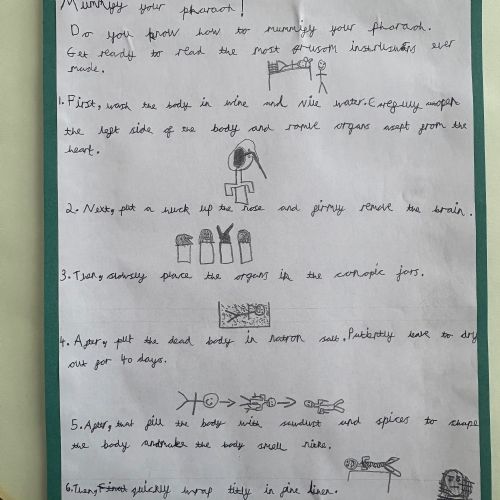 Mummify your pharaoh!
Do you know how to mummify your pharaoh.
Get ready to read the most grusom instructions ever
made.
1. First, wash the body in wine and Nile water. Carefully
the left side of the body and organs from the
heart.
2. Next, put a huck up the nose and firmly remove the brain.
3. Then, slowsly place the organs in the canopic jars.
4. After, put the dead body in natron salt. leave to dry
out for 40 days.
5. After, that fill the body with sawdust and spices to shape
the body make the body smell nicke.
6. Then, quickly wrap titly in fine linen.